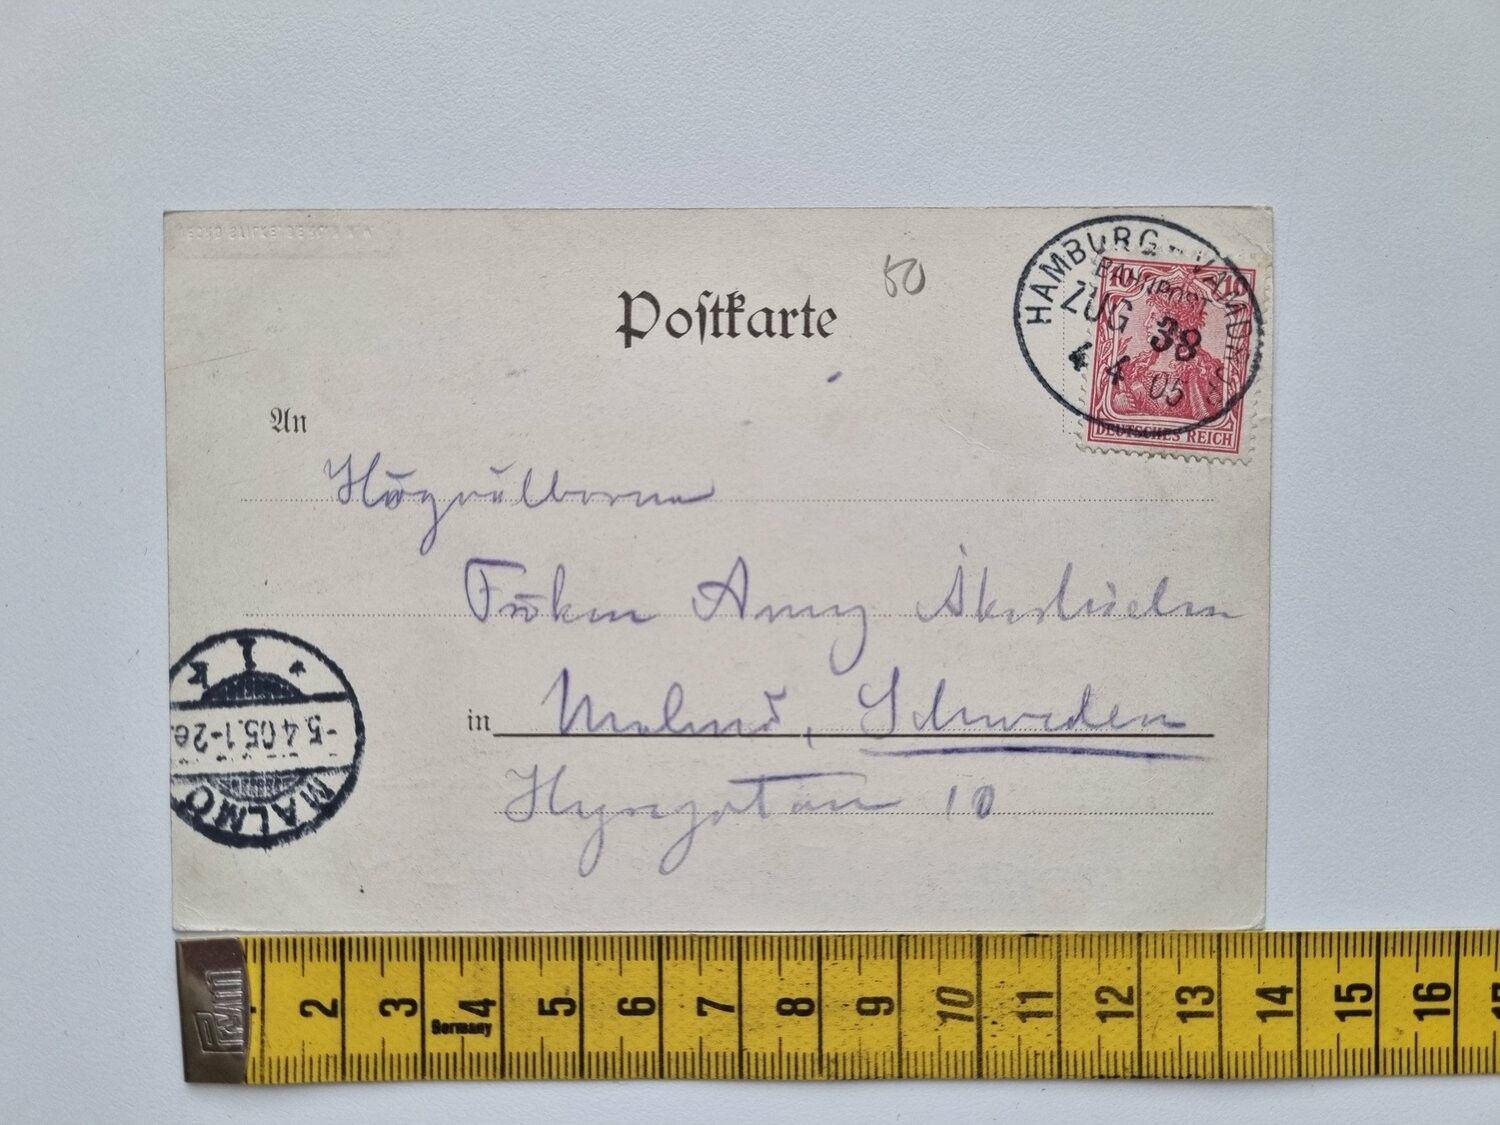 50
Postkarte
HAMBURG - VAMDRUP
BAHNPOST
ZUG 38
4 4 05
10 10
DEUTSCHES REICH
An
Högvälborna
Fröken Anny
in Malmö, Schweden
10
K I *
-5.4.05.1-2e.
MALMÖ
Prym
2 3 4 5 6 7 8 9 10 11 12 13 14 15 16
Germany